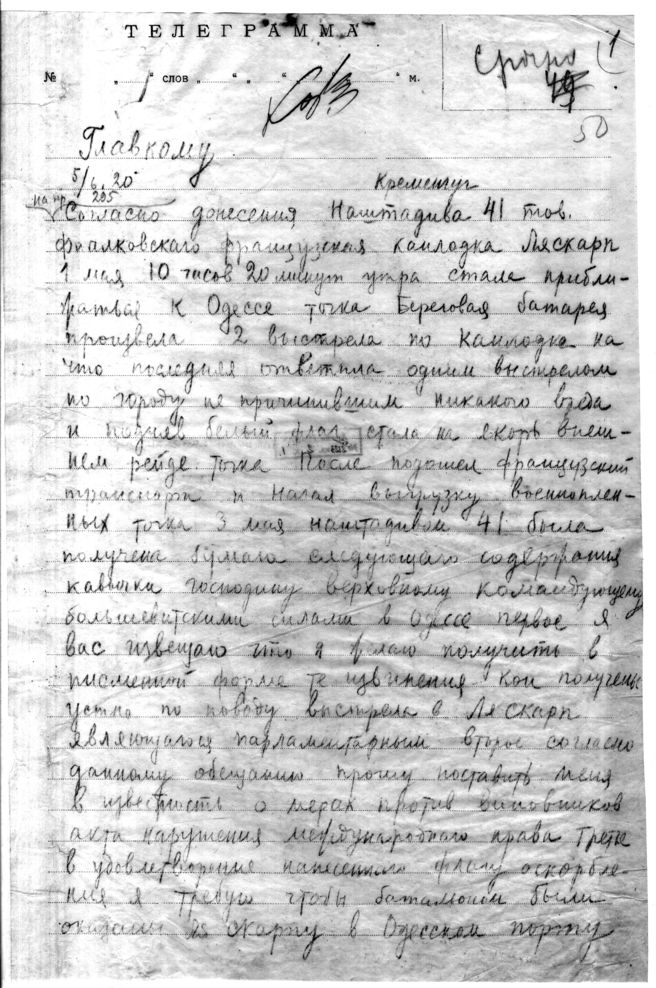 ТЕЛЕГРАММА
№ „ “ слов „ “ „ “ „ “ м.
Срочно 1
50
Главкому
5/6.20 Кременчуг
на № 205
Согласно донесения Наштадива 41 тов.
Фиалковскаго французская канлодка Ляскарп
1 мая 10 часов 20 минут утра стала прибли-
жаться к Одессе точка Береговая батарея
произвела 2 выстрела по канлодке на
что последняя ответила одним выстрелом
по городу не причинившим никакого вреда
и подняв белый флаг стала на якорь внеш-
нем рейде точка После подошел французский
транспорт и начал выгрузку военноплен-
ных точка 3 мая наштадивом 41 была
получена бумага следующаго содержания
кавычки господину верховному командующему
большевитскими силами в Одессе первое я
вас извещаю что я желаю получить в
письменной форме те извинения кои получены
устно по поводу выстрела в Ляскарп
являющагося парламентарным второе согласно
данному обещанию прошу поставить меня
в известность о мерах против виновников
акта нарушения международнаго права Третье
в удовлетворение нанесеннаго флагу оскорбле-
ния я требую чтобы батальоном были
оказаны Ля Скарпу в Одесском порту